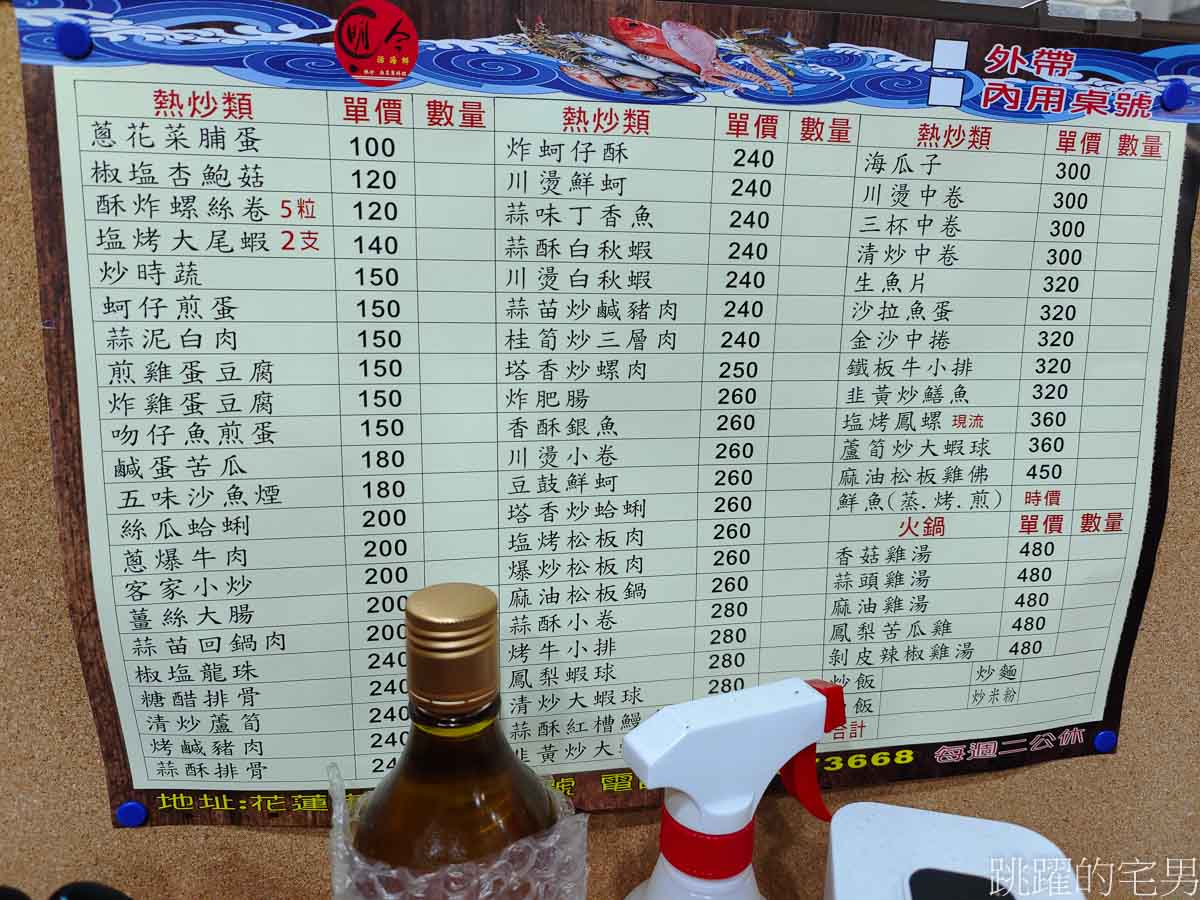 明令
活海鮮
外帶
內用桌號
熱炒類 單價 數量
蔥花菜脯蛋 100
椒塩杏鮑菇 120
酥炸螺絲卷 5粒 120
塩烤大尾蝦 2支 140
炒時蔬 150
蚵仔煎蛋 150
蒜泥白肉 150
煎雞蛋豆腐 150
炸雞蛋豆腐 150
吻仔魚煎蛋 150
鹹蛋苦瓜 180
五味沙魚煙 180
絲瓜蛤蜊 200
蔥爆牛肉 200
客家小炒 200
薑絲大腸 200
蒜苗回鍋肉 200
椒塩龍珠 240
糖醋排骨 240
清炒蘆筍 240
烤鹹豬肉 240
蒜酥排骨 24
熱炒類 單價 數量
炸蚵仔酥 240
川燙鮮蚵 240
蒜味丁香魚 240
蒜酥白秋蝦 240
川燙白秋蝦 240
蒜苗炒鹹豬肉 240
桂筍炒三層肉 240
塔香炒螺肉 250
炸肥腸 260
香酥銀魚 260
川燙小卷 260
豆鼓鮮蚵 260
塔香炒蛤蜊 260
塩烤松板肉 260
爆炒松板肉 260
麻油松板鍋 260
蒜酥小卷 280
烤牛小排 280
鳳梨蝦球 280
清炒大蝦球 280
蒜酥紅槽鰻
韭黃炒大
熱炒類 單價 數量
海瓜子 300
川燙中卷 300
三杯中卷 300
清炒中卷 300
生魚片 320
沙拉魚蛋 320
金沙中捲 320
鐵板牛小排 320
韭黃炒鱔魚 320
塩烤鳳螺 現流 360
蘆筍炒大蝦球 360
麻油松板雞佛 450
鮮魚(蒸.烤.煎) 時價
火鍋 單價 數量
香菇雞湯 480
蒜頭雞湯 480
麻油雞湯 480
鳳梨苦瓜雞 480
剝皮辣椒雞湯 480
炒飯 炒麵
飯 炒米粉
合計
地址:花蓮 號 電 73668 每週二公休
跳躍的宅男